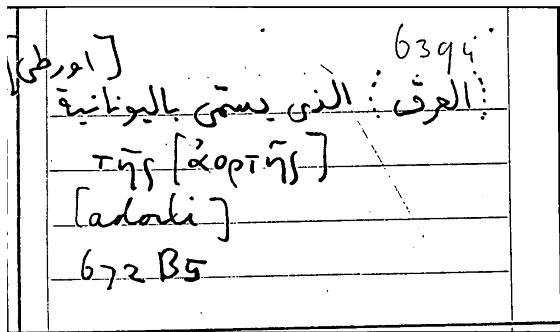 6394
[اورطى]
العرق : الذى يسمّى باليونانية
τῆς [ἀορτῆς]
[adorti]
672 B5